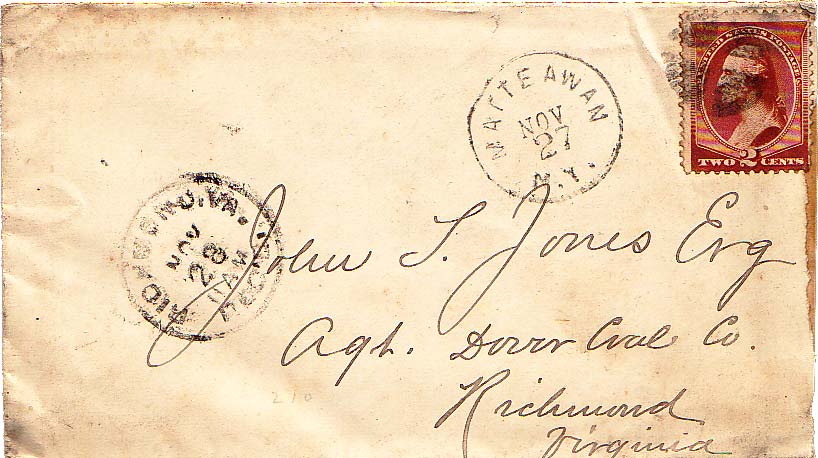 UNITED STATES POSTAGE
TWO 2 CENTS
MATTEAWAN
NOV
27
N.Y.
RICHMOND, VA.
NOV
28
11 AM
REC'D
John S. Jones Esq
Agt. Dover Coal Co.
Richmond
Virginia
210